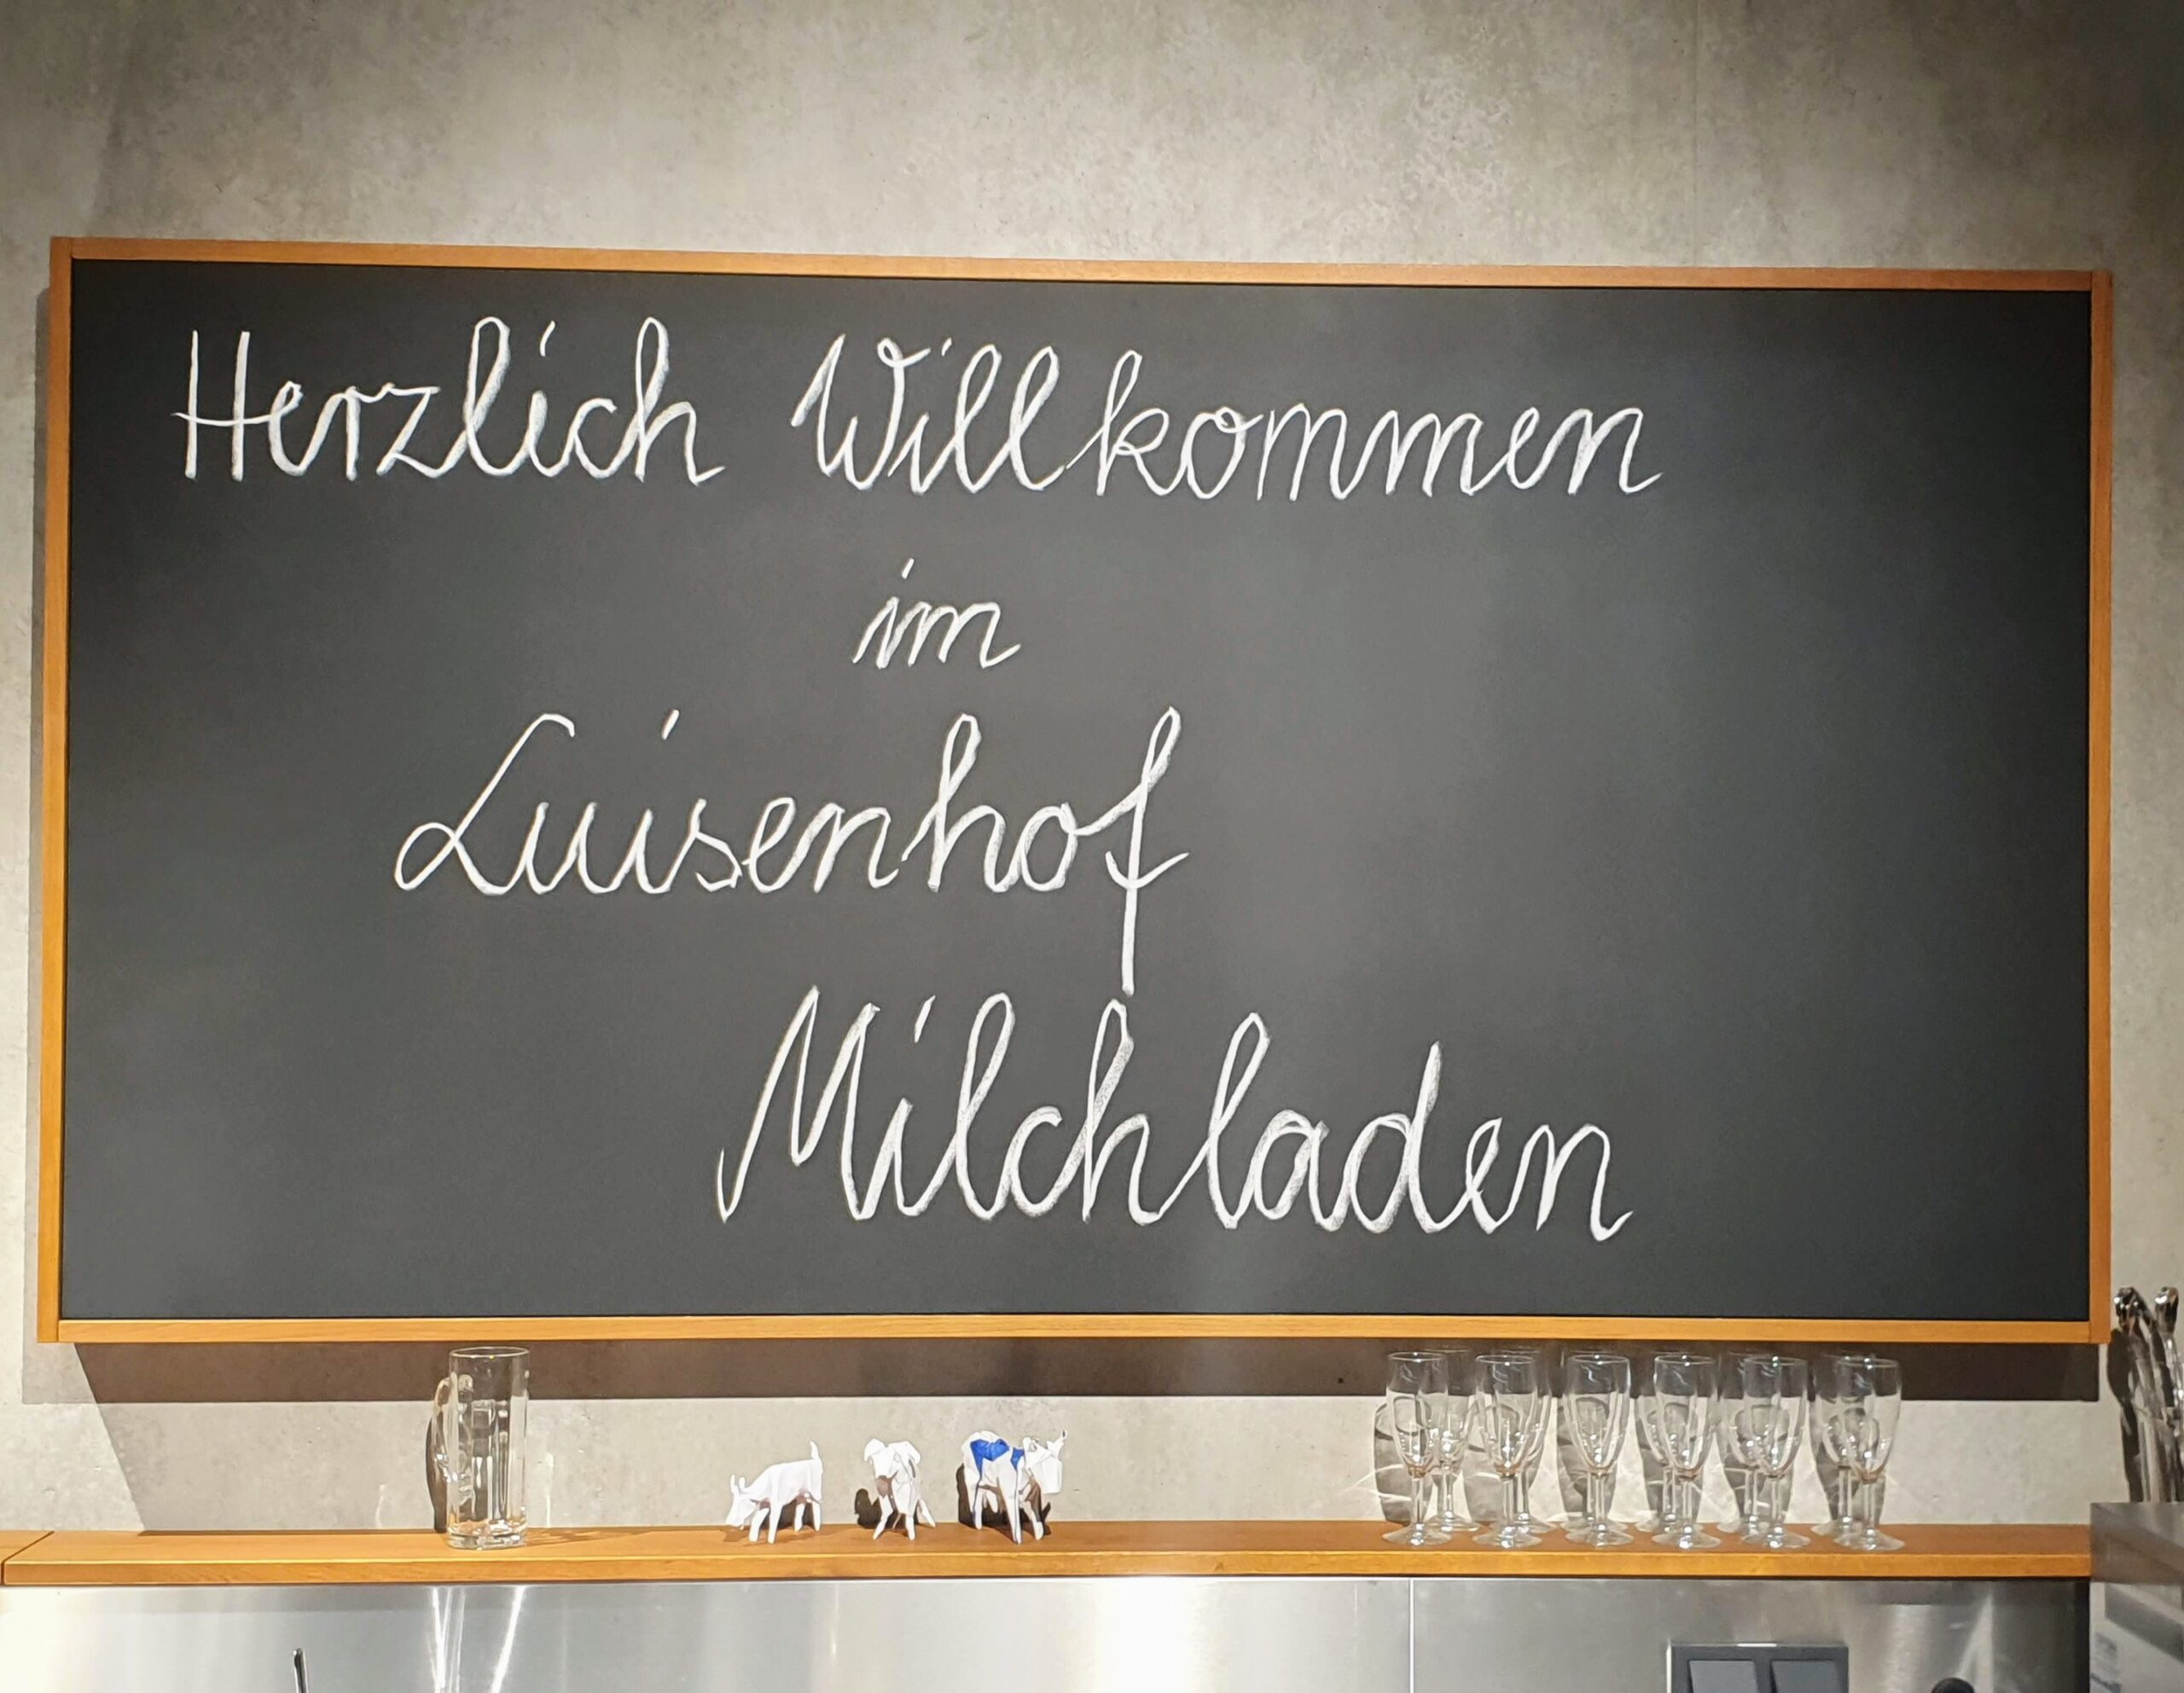 Herzlich Willkommen
im
Luisenhof
Milchladen